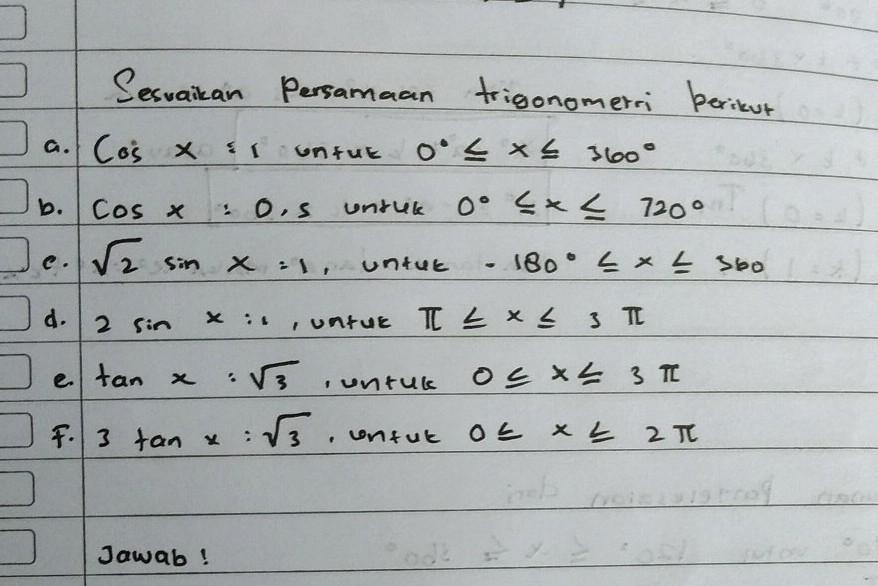 Sesuaikan Persamaan trigonometri berikut
a. Cos x = 1 untuk 0° ≤ x ≤ 360°
b. Cos x = 0,5 untuk 0° ≤ x ≤ 720°
c. √2 sin x = 1, untuk - 180° ≤ x ≤ 360
d. 2 sin x = 1, untuk π ≤ x ≤ 3 π
e. tan x = √3, untuk 0 ≤ x ≤ 3 π
F. 3 tan x = √3, untuk 0 ≤ x ≤ 2 π
Jawab !